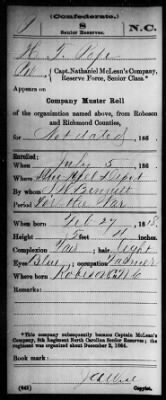 (Confederate.)
S N.C.
Senior Reserves.
Capt. Nathaniel McLean's Company,
Reserve Force, Senior Class.*
Appears on
Company Muster Roll
of the organization named above, from Robeson
and Richmond Counties,
for Not dated, 186 .
Enrolled:
When July 5, 186 .
Where
By Bennett
Period For the War
When born Feb. 27, 18
Height
Complexion Fair, hair Light
Eyes Blue, occupation Farmer
Where born Robeson N.C.
Remarks:
*This company subsequently became Captain McLean's
Company, 8th Regiment North Carolina Senior Reserves; the
regiment was organized about December 2, 1864.
Book mark:
(643) Copyist.